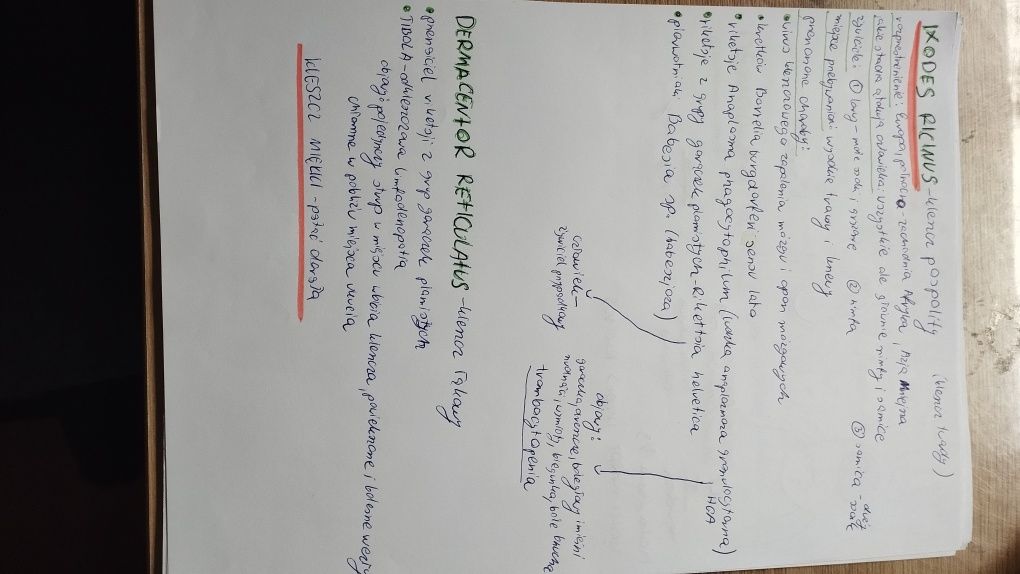 IXODES RICINUS - kleszcz pospolity (kleszcz twardy)
rozprzestrzenienie: Europa, północno-zachodnia Afryka, Azja Mniejsza
jakie stadia atakują człowieka: wszystkie ale głównie nimfy i samice
żywiciele: ① larwy - małe ssaki i gryzonie ② nimfa ③ samica - duże ssaki
miejsce przebywania: wysokie trawy i krzewy
przenoszone choroby:
• wirus kleszczowego zapalenia mózgu i opon mózgowych
• krętków Borrelia burgdorferi sensu lato
• riketsje Anaplasma phagocytophilum (ludzka anaplazmoza granulocytarna) HGA
• riketsje z grupy gorączek plamistych - Rikettsia helvetica
• pierwotniaki Babesia sp. (babeszjoza)
człowiek -
żywiciel przypadkowy
objawy:
gorączka, dreszcze, bóle głowy i mięśni
nudności, wymioty, biegunka, bóle brzucha
trombocytopenia
DERMACENTOR RETICULATUS - kleszcz łąkowy
• przenosiciel riketsji z grup gorączek plamistych
• TIBOLA - odkleszczowa limfadenopatia
objawy: pojedynczy strup w miejscu wbicia kleszcza, powiększone i bolesne węzły
chłonne w pobliżu miejsca ukucia
KLESZCZ MIĘKKI - postać dorosła